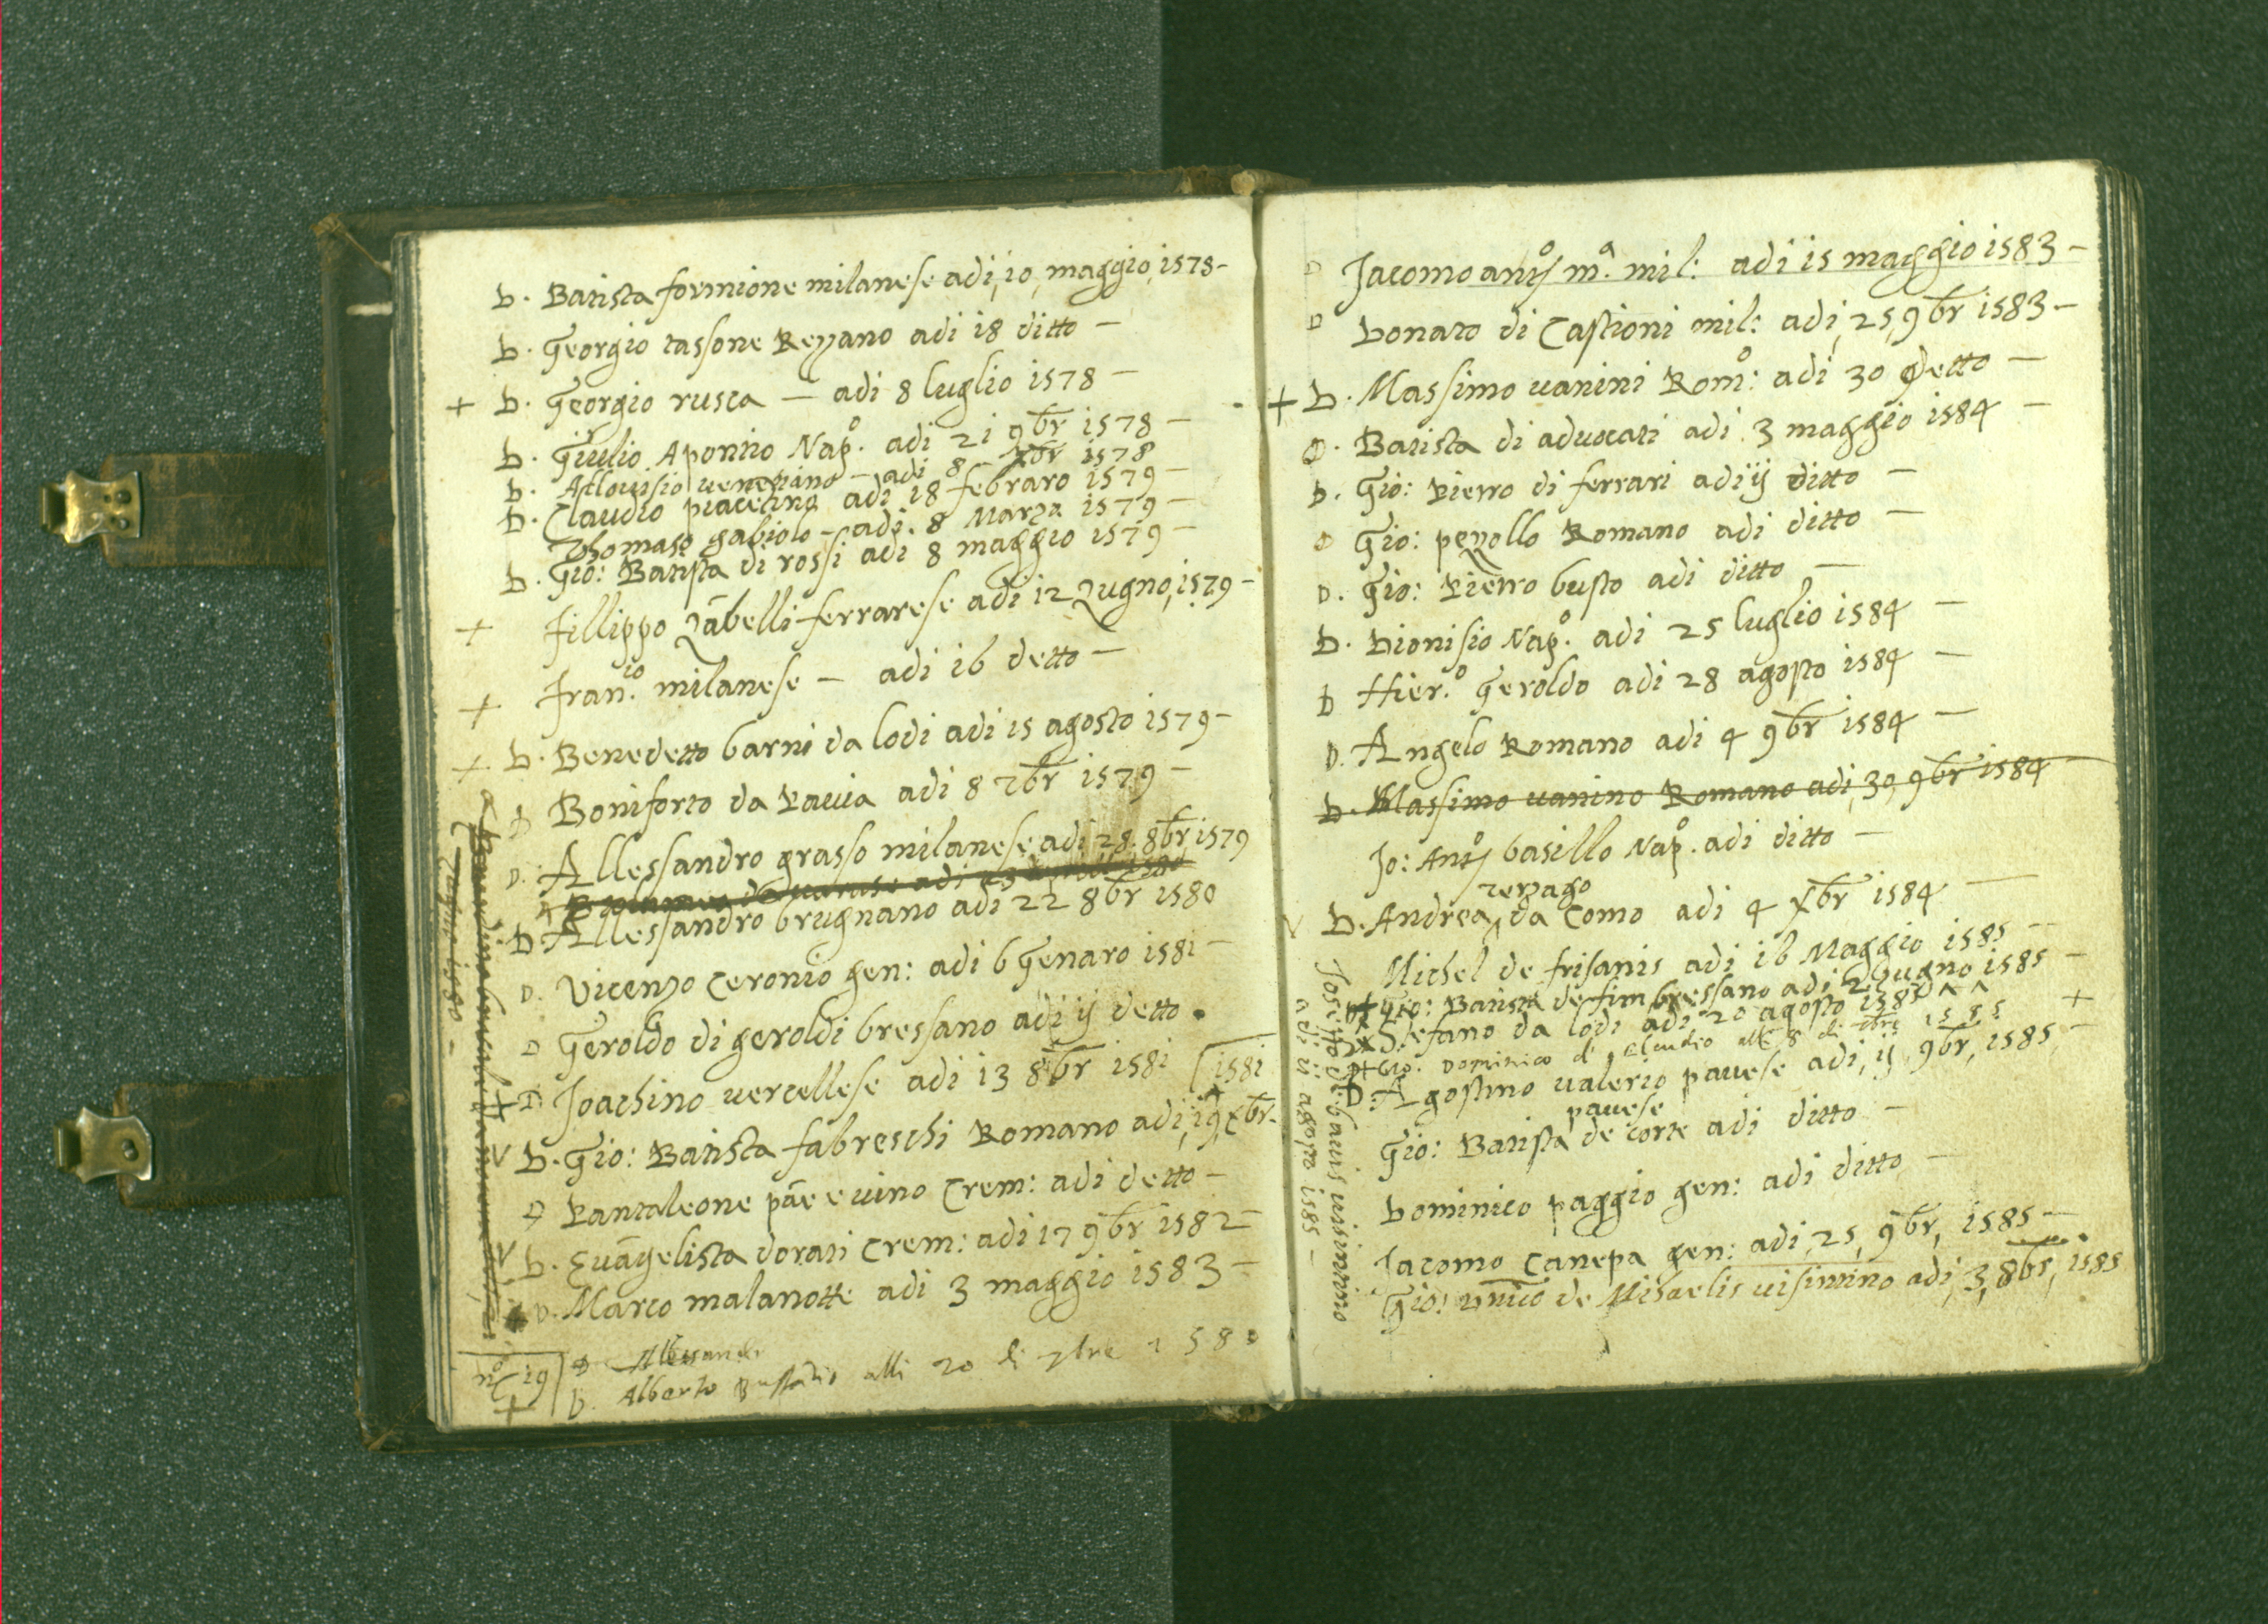 D. Batista formione milanese adi, 10, maggio, 1578 -
D. Georgio tassone Rezano adi 18 ditto -
+ D. Georgio rusca - adi 8 luglio 1578 -
D. Giulio Apontio Nap.º adi 21 9br 1578 -
D. Allouisio venetiano - adi 8 xbr 1578
D. Claudio piacetino adi 18 febraro 1579 -
Thomaso gabiolo - adi 8 Marza 1579 -
D. Gio: Batista di rossi adi 8 maggio 1579 -
+ fillippo Zābelli ferrarese adi 12 Zugno, 1579 -
+ fran.io milanese - adi 16 detto -
+ D. Benedetto barni da lodi adi 15 agosto 1579 -
D Boniforto da Pauia adi 8 7br 1579 -
D. Allessandro grasso milanese adi 28. 8br 1579
D. Allessandro brugnano adi 22 8br 1580
D. Vicenzo Ceronio gen: adi 6 Genaro 1581 -
D Geroldo di geroldi bressano adi ij detto .
+ D Joachino vercellese adi 13 8br 1581
1581
V D. Gio: Batista fabreschi Romano adi, 19, xbr.
D Pantaleone pāe e uino Crem: adi detto -
V D. Euāgelista dorati Crem: adi 17 9br 1582 -
D. Marco malanotte adi 3 maggio 1583 -
nº 19
D Allessandr
+ D. Alberto alli 20 di 7bre 1580
Zugno 1580 -
D Jacomo antº mª. mil: adi 15 maggio 1583 -
D Donato di Castioni mil: adi, 25, 9br 1583 -
+ D. Massimo uanini Romº: adi 30 Detto -
D. Batista di aduocati adi 3 maggio 1584 -
D. Gio: Pietro di ferrari adi ij ditto -
D Gio: pezollo Romano adi ditto -
D. Gio: Pietro busto adi ditto -
D. Dionisio Nap.º adi 25 luglio 1584 -
D Hier.º Geroldo adi 28 agosto 1584 -
D. Angelo Romano adi 4 9br 1584 -
D. Massimo uanino Romano adi, 30, 9br 1584 -
Jo: Antº basillo Napº. adi ditto -
terzago
V D. Andrea, da Como adi 4 xbr 1584 -
Michel de frisanis adi 16 Maggio 1585 -
Gio: Batista de fim bressano adi 2 Giugno 1585 -
Stefano da lodi adi 20 agosto 1585
Gio. Dominico di Claudio alli 8 di 7bre 1585 +
D. Agostino valerio pauese adi, ij, 9br, 1585 -
pauese
Gio: Batista de corte adi ditto -
Dominico paggio gen: adi ditto -
Jacomo Canepa gen: adi, 25, 9br, 1585 -
Gio: de Michaelis uisintino adi, 3, 8br, 1585
Joseppo de bauis uisintino
adi ii agosto 1585 -